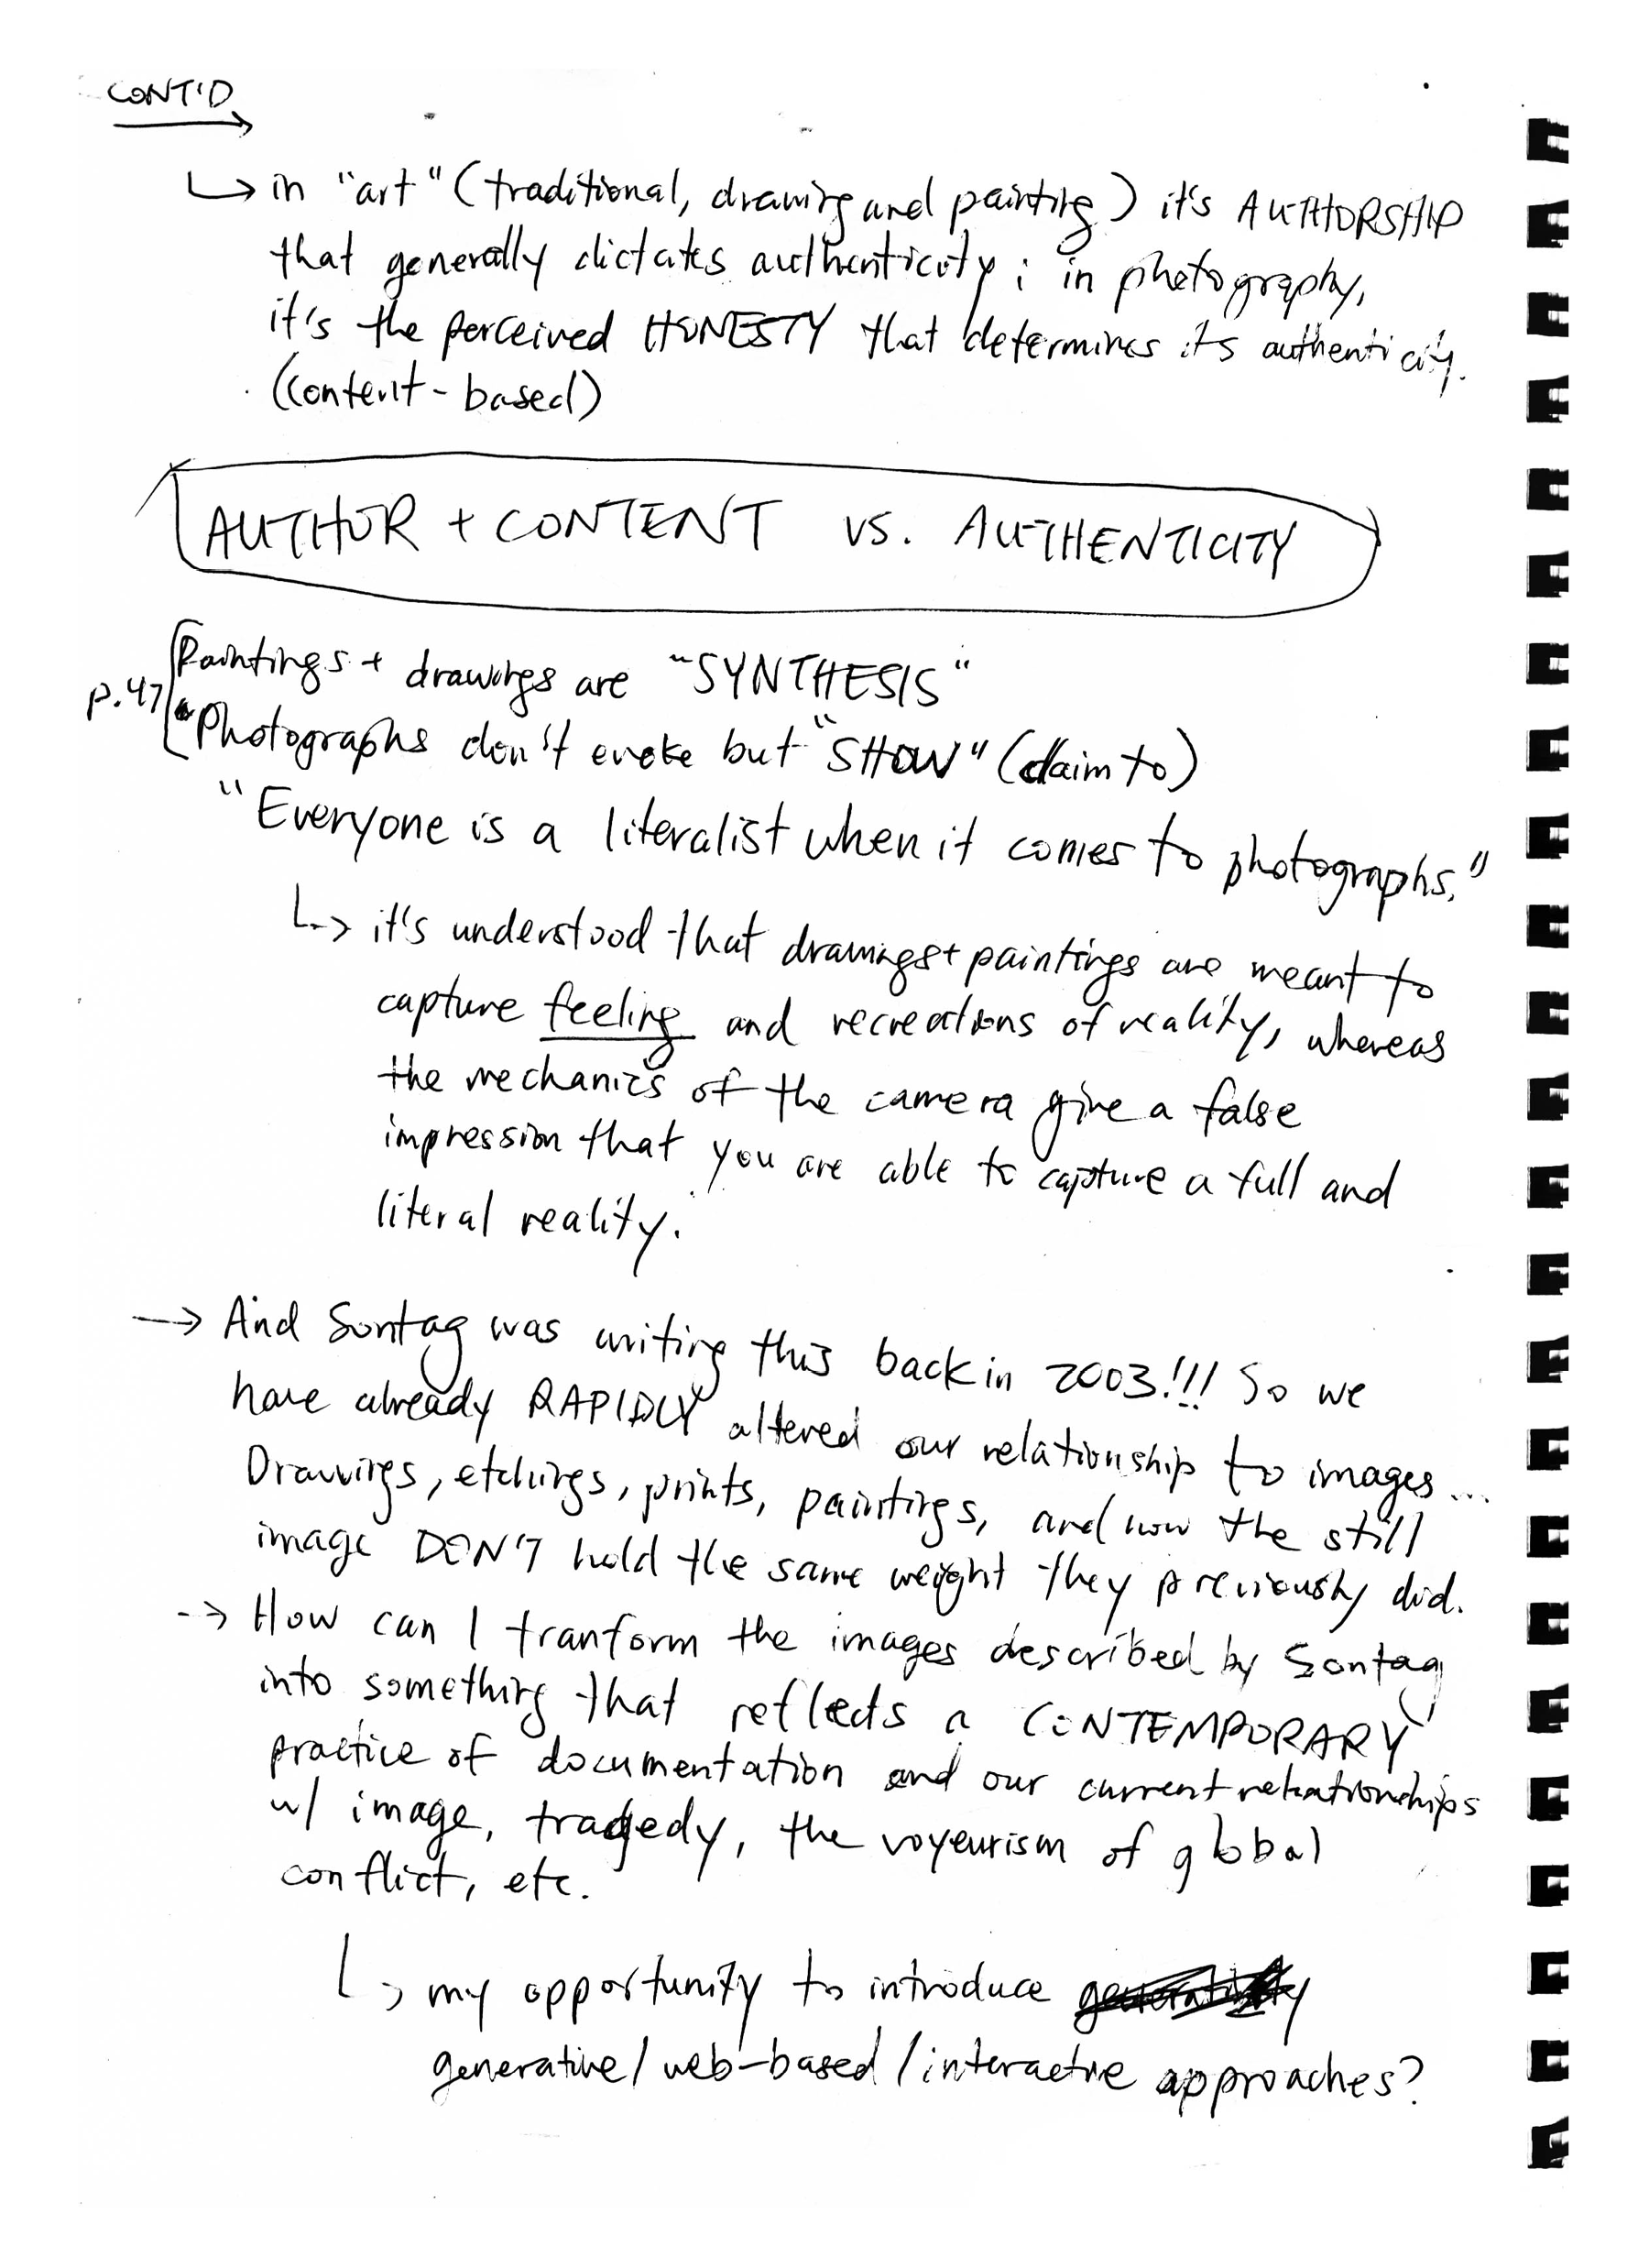 CONT'D
↳ in "art" (traditional, drawing and painting) it's AUTHORSHIP
that generally dictates authenticity; in photography,
it's the perceived HONESTY that determines its authenticity.
(content-based)
AUTHOR + CONTENT vs. AUTHENTICITY
Paintings + drawings are "SYNTHESIS"
p.47
Photographs don't evoke but "SHOW" (claim to)
"Everyone is a literalist when it comes to photographs."
↳ it's understood that drawings + paintings are meant to
capture feeling and recreations of reality, whereas
the mechanics of the camera give a false
impression that you are able to capture a full and
literal reality.
→ And Sontag was writing this back in 2003!!! So we
have already RAPIDLY altered our relationship to images...
Drawings, etchings, prints, paintings, and now the still
image DON'T hold the same weight they previously did.
→ How can I tranform the images described by Sontag
into something that reflects a CONTEMPORARY
practice of documentation and our current relationships
w/ image, tragedy, the voyeurism of global
conflict, etc.
↳ my opportunity to introduce
generative/web-based/interactive approaches?